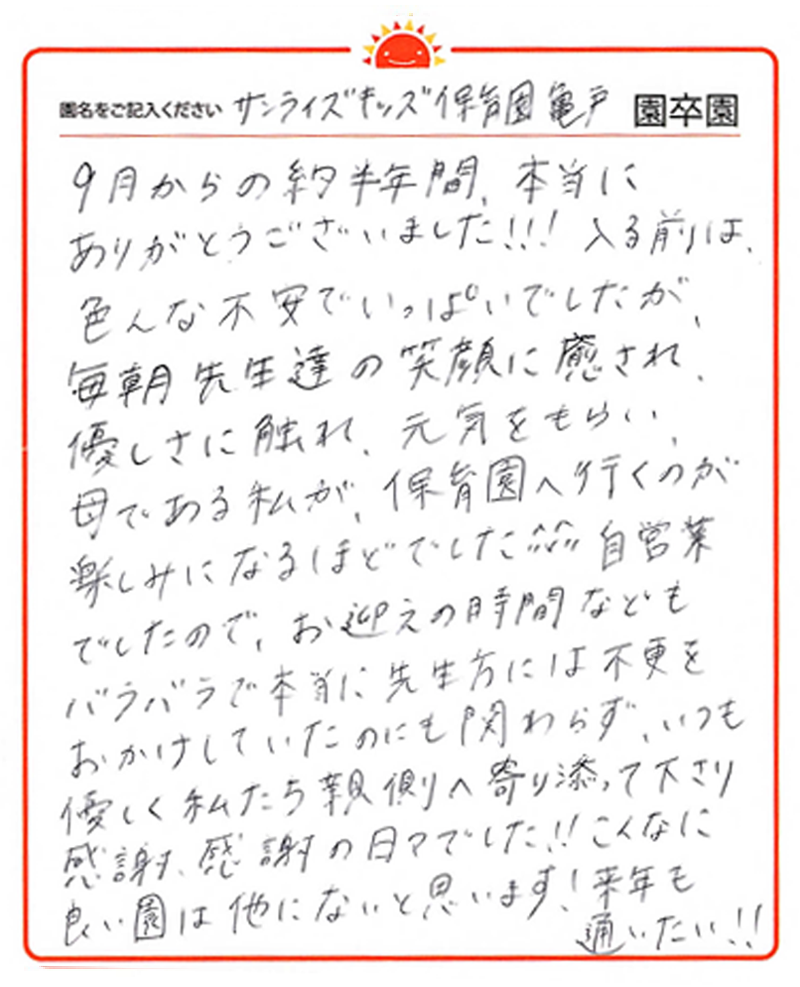 園名をご記入ください サンライズキッズ保育園亀戸 園卒園
9月からの約半年間、本当に
ありがとうございました!!! 入る前は、
色んな不安でいっぱいでしたが、
毎朝先生達の笑顔に癒され、
優しさに触れ、元気をもらい、
母である私が、保育園へ行くのが
楽しみになるほどでした^^ 自営業
でしたので、お迎えの時間なども
バラバラで本当に先生方には不更を
おかけしていたのにも関わらず、いつも
優しく私たち親側へ寄り添って下さり
感謝、感謝の日々でした!! こんなに
良い園は他にないと思います! 来年も
通いたい!!